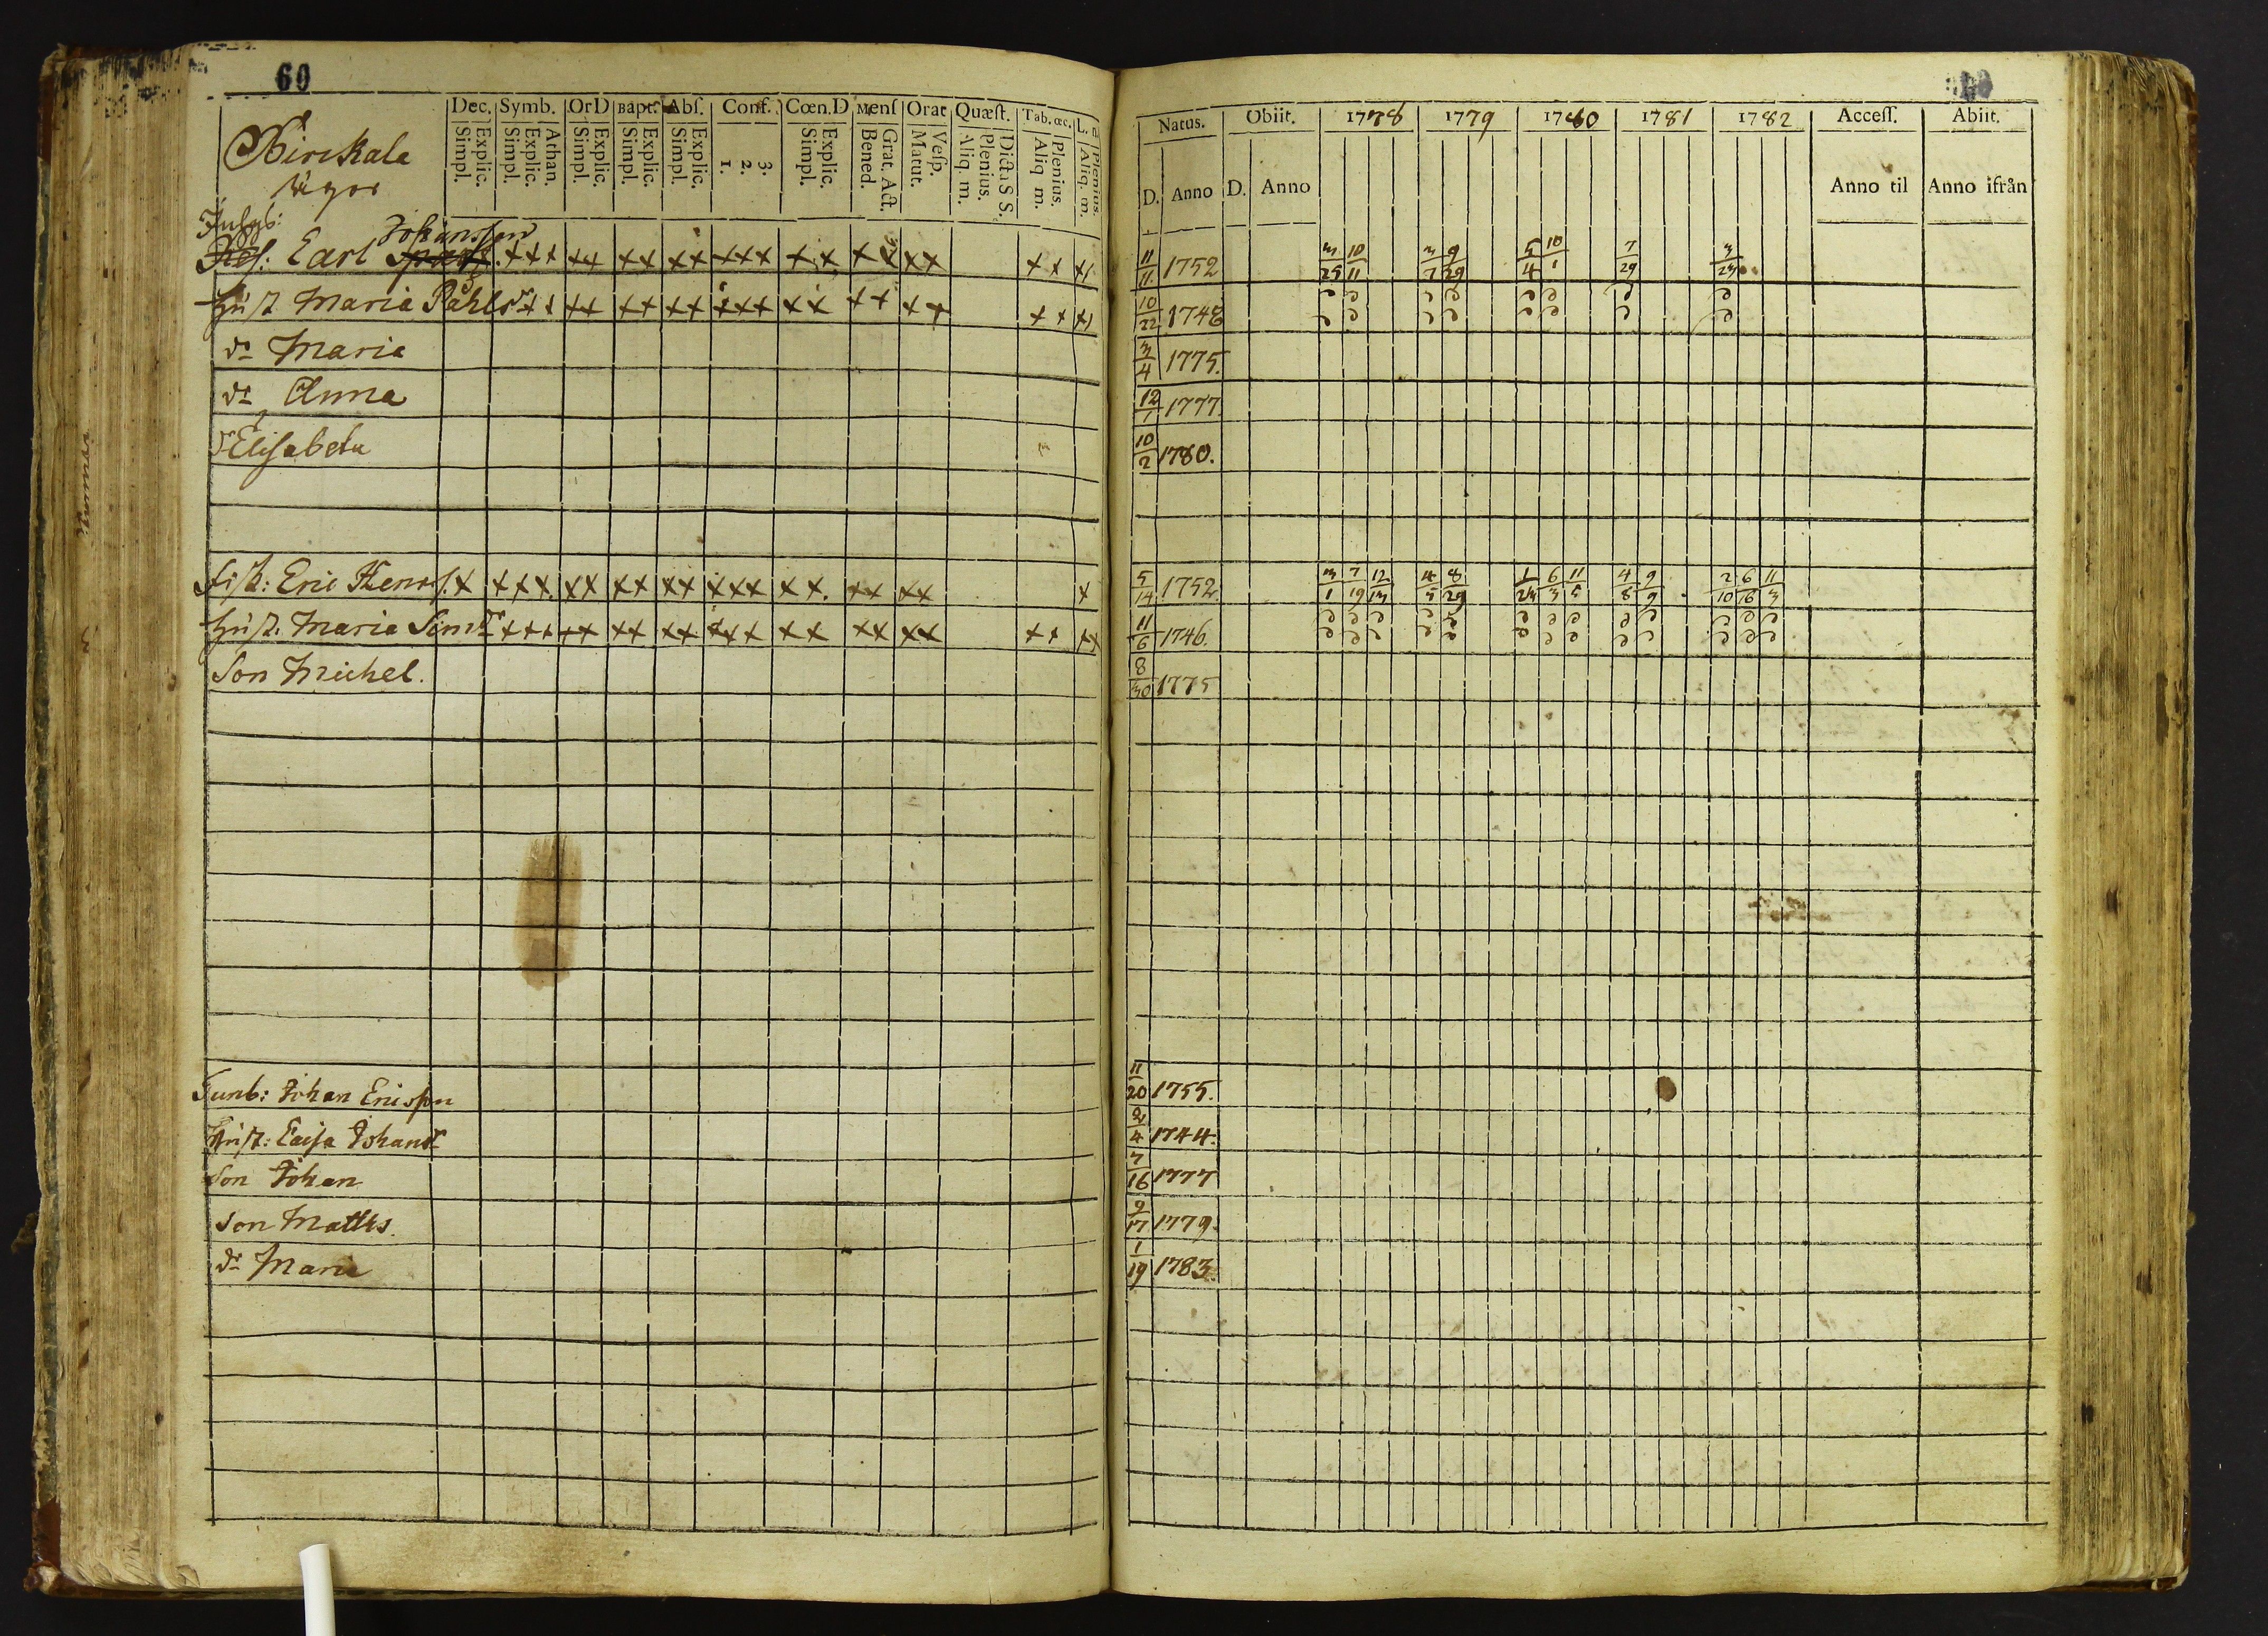 60
Dec. Symb. OrD Bapt. Abſ. Conf. Cœn.D Menſ Orat Quæſt. Tab. œc. L. n
Simpl. Explic. Simpl. Explic. Athan. Simpl. Explic. Simpl. Explic. Simpl. Explic. 1. 2. 3. Simpl. Explic. Bened. Grat. Act. Matut. Veſp. Aliq. m. Plenius. Dicta S S. Aliq m. Plenius. Aliq. m. Plenius.
Nirckala
ägor
Johansson
Carl
Hust Maria Påhlsdr
dr Maria
dr Anna
dr Elisabeta
Eric Henrs.
Hust. Maria Simdr
Son Michel.
Johan Ericsson
Hust: Caisa Johansdr
Son Johan
Son Matts.
dr Maria
Natus. Obiit. 1778 1779 1780 1781 1782 Acceſſ. Abiit.
D. Anno D. Anno Anno til Anno ifrån
11/11 1752 3/25 10/11 3/7 9/29 5/4 10/1 7/29 3/23
10/22 1748
3/4 1775.
12/1 1777.
10/2 1780.
5/14 1752. 3/1 7/19 12/13 4/5 8/29 1/23 6/3 11/5 4/8 9/9 2/10 6/16 11/3
11/6 1746.
8/30 1775
11/20 1755.
2/4 1744.
7/16 1777
9/17 1779.
1/19 1783.